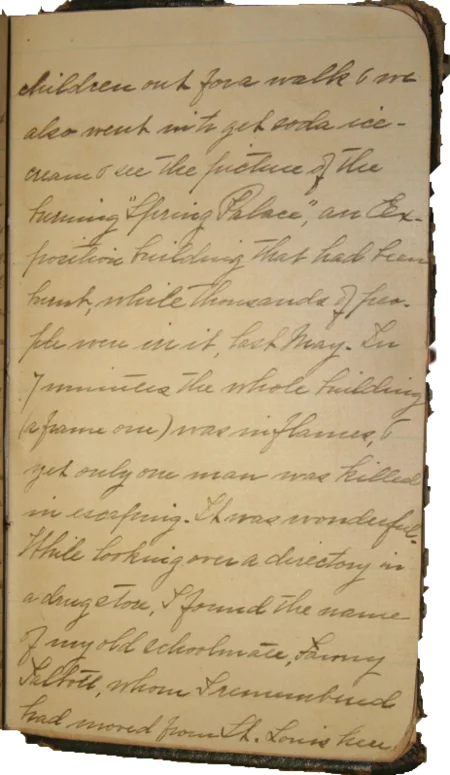 children out for a walk & we
also went in to get soda ice-
cream & see the picture of the
burning "Spring Palace", an Ex-
position building that had been
burnt, while thousands of peo-
ple were in it, last May. In
7 minutes the whole building
(a frame one) was in flames, &
yet only one man was killed
in escaping. It was wonderful.
While looking over a directory in
a drug store, I found the name
of my old schoolmate, Fanny
Talbott, whom I remembered
had moved from St. Louis here